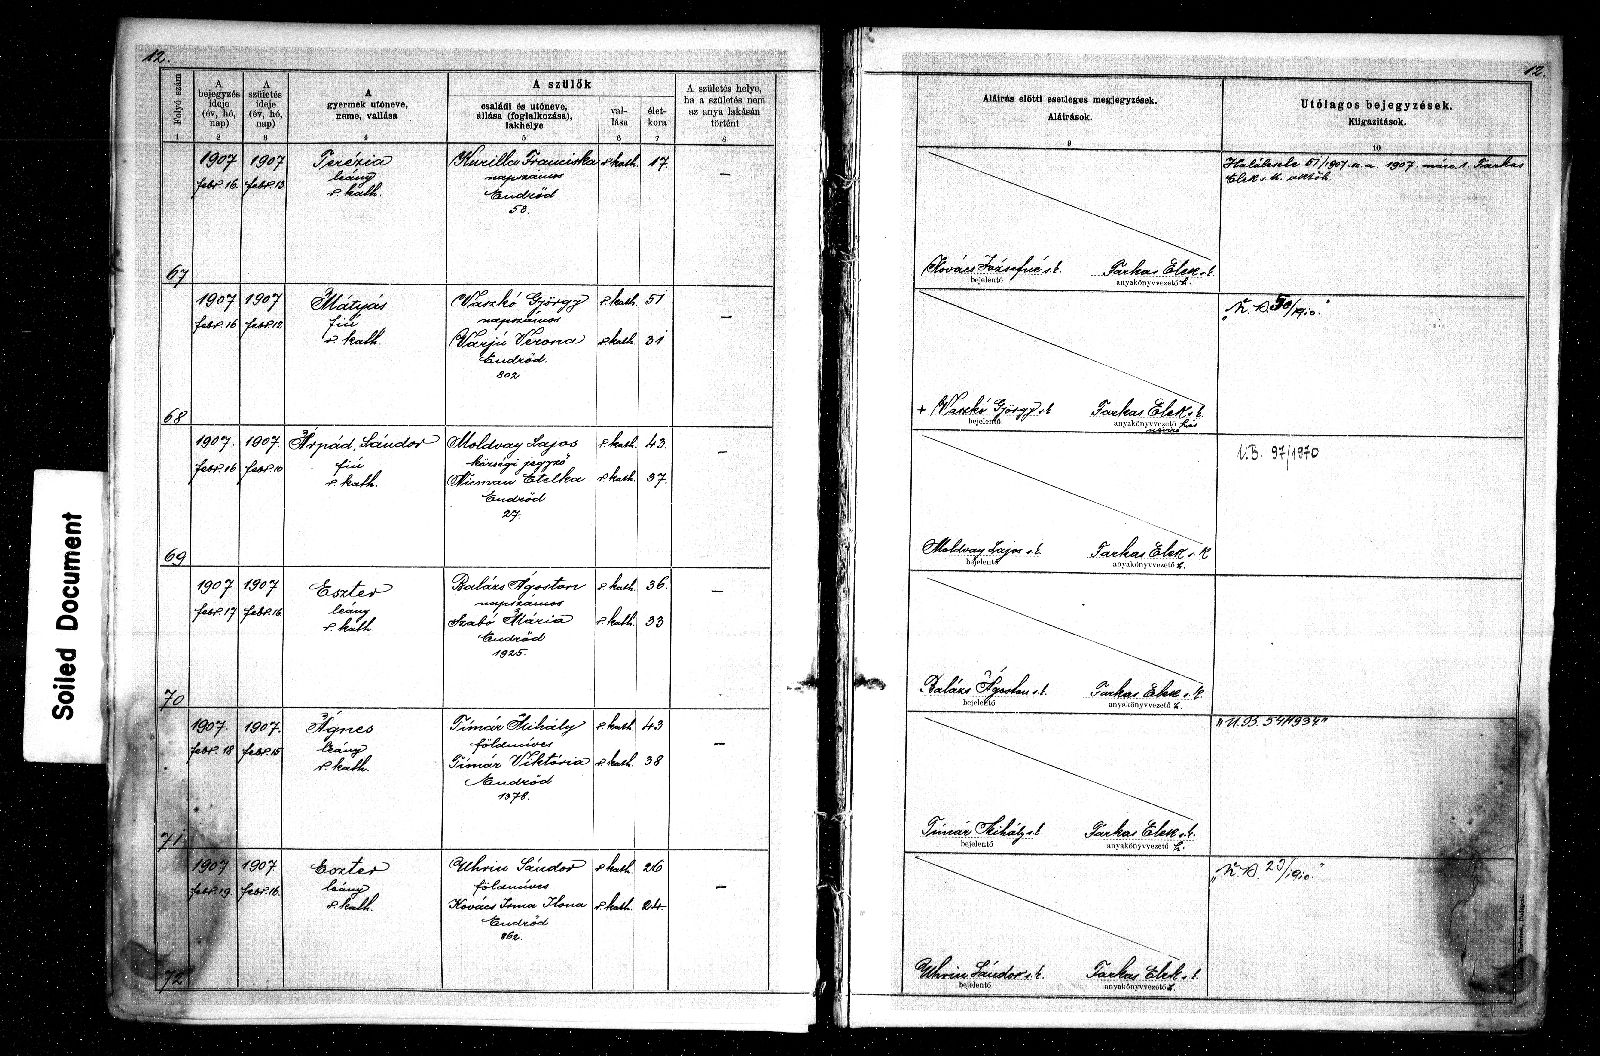 12.
Folyó szám
A bejegyzés ideje (év, hó, nap)
A születés ideje (év, hó, nap)
A gyermek utóneve, neme, vallása
A szülők
családi és utóneve, állása (foglalkozása), lakhelye
vallása
életkora
A születés helye, ha a születés nem az anya lakásán történt
1 2 3 4 5 6 7 8
67
1907 febr. 16.
1907 febr. 13
Terézia
leány
r. kath.
Kurilla Franciska r. kath. 17.
napszámos
Endrőd
53.
–
68
1907 febr. 16
1907 febr. 12
Mátyás
fiú
r. kath.
Vaszkó György r. kath. 51
napszámos
Varjú Verona r. kath. 31
Endrőd.
802
–
69
1907. febr. 16
1907 febr. 10
Árpád, Sándor
fiú
r. kath.
Moldvay Lajos r. kath. 43.
községi jegyző
Etelka r. kath. 37.
Endrőd
27.
–
70
1907 febr. 17
1907 febr. 16
Eszter
leány
r. kath
Balázs Ágoston r. kath. 36.
napszámos
Szabó Mária r. kath. 33
Endrőd
1925.
–
71
1907. febr. 18
1907. febr. 15
Ágnes
leány
r. kath.
Tímár Mihály r. kath. 43
földmíves
Tímár Viktória r. kath. 38
Endrőd
1378.
–
72
1907 febr. 19.
1907. febr. 16.
Eszter
leány
r. kath.
Uhrin Sándor r. kath. 26
földmíves
Kovács Irma Ilona r. kath. 24.
Endrőd
862.
–
12.
Aláírás előtti esetleges megjegyzések.
Aláírások.
Utólagos bejegyzések.
Kiigazítások.
9 10
51/1907. 1907. márc. 1. Farkas
Elek s. k.
Kovács Józsefné s. k. Farkas Elek s. k.
bejelentő anyakönyvvezető h.
50/1910."
+ Vaszkó György s. k. Farkas Elek s. k.
bejelentő anyakönyvvezető
U.B. 97/1970
Moldvay Lajos s. k. Farkas Elek s. k.
bejelentő anyakönyvvezető h.
Balázs Ágoston s. k. Farkas Elek s. k.
bejelentő anyakönyvvezető h.
Tímár Mihály s. k. Farkas Elek s. k.
bejelentő anyakönyvvezető h.
23/1910"
Uhrin Sándor s. k. Farkas Elek s. k.
bejelentő anyakönyvvezető h.
Soiled Document